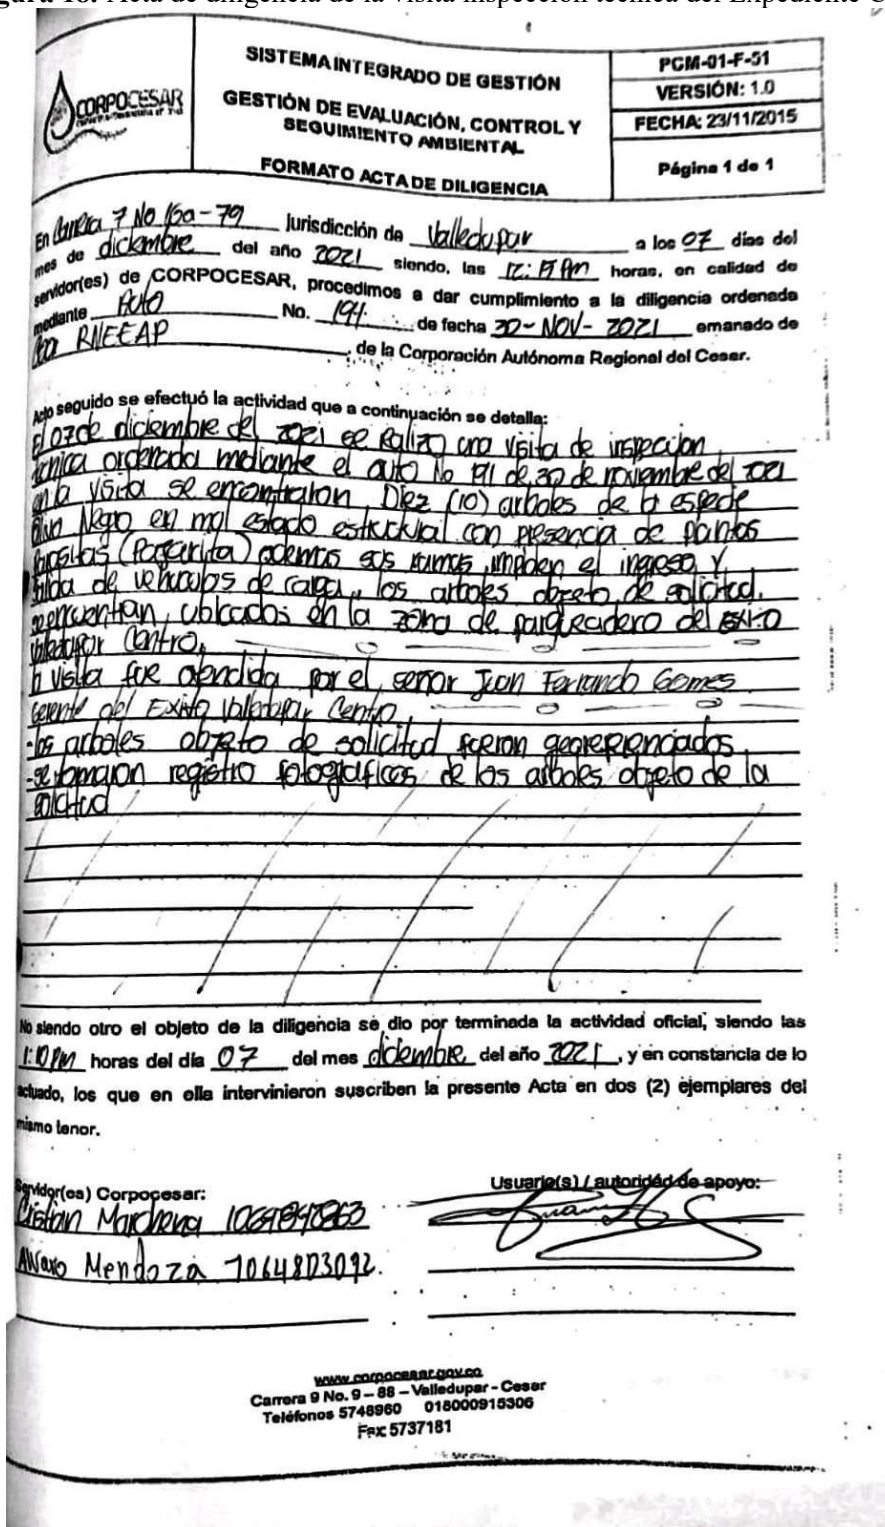 Acta de diligencia de la visita inspección técnica del Expediente
CORPOCESAR
SISTEMA INTEGRADO DE GESTIÓN
GESTIÓN DE EVALUACIÓN, CONTROL Y
SEGUIMIENTO AMBIENTAL
FORMATO ACTA DE DILIGENCIA
PCM-01-F-51
VERSIÓN: 1.0
FECHA: 23/11/2015
Página 1 de 1
En Carrera 7 No 16a-79 jurisdicción de Valledupar a los 07 días del
mes de diciembre del año 2021 siendo, las horas, en calidad de
servidor(es) de CORPOCESAR, procedimos a dar cumplimiento a la diligencia ordenada
mediante Auto No. 191 de fecha 30-NOV-2021 emanado de
, de la Corporación Autónoma Regional del Cesar.
Acto seguido se efectuó la actividad que a continuación se detalla:
El 07 de diciembre del 2021 se Realizo una visita de inspeccion
tecnica ordenada mediante el auto No 191 de 30 de noviembre del 2021
en la visita se encontraron Diez (10) arboles de la especie
Olivo Negro en mal estado estructural con presencia de plantas
Parasitas (Pajarita) ademas sus ramas impiden el ingreso y
salida de vehiculos de carga, los arboles objeto de solicitud,
se encuentran ubicados en la zona de parqueadero del Exito
Valledupar Centro,
la visita fue atendida por el señor Juan Fernando Gomes
Gerente del Exito Valledupar Centro,
-los arboles objeto de solicitud fueron georefenciados,
-se tomaron registro fotograficos de los arboles objeto de la
solicitud
No siendo otro el objeto de la diligencia se dio por terminada la actividad oficial, siendo las
1:10 PM horas del día 07 del mes diciembre, del año 2021, y en constancia de lo
actuado, los que en ella intervinieron suscriben la presente Acta en dos (2) ejemplares del
mismo tenor.
Servidor(es) Corpocesar:
Usuario(s) / autoridad de apoyo:
Cristian Marchena
Alvaro Mendoza
www.corpocesar.gov.co
Carrera 9 No. 9 – 88 – Valledupar - Cesar
Teléfonos 5748960 018000915306
Fax: 5737181